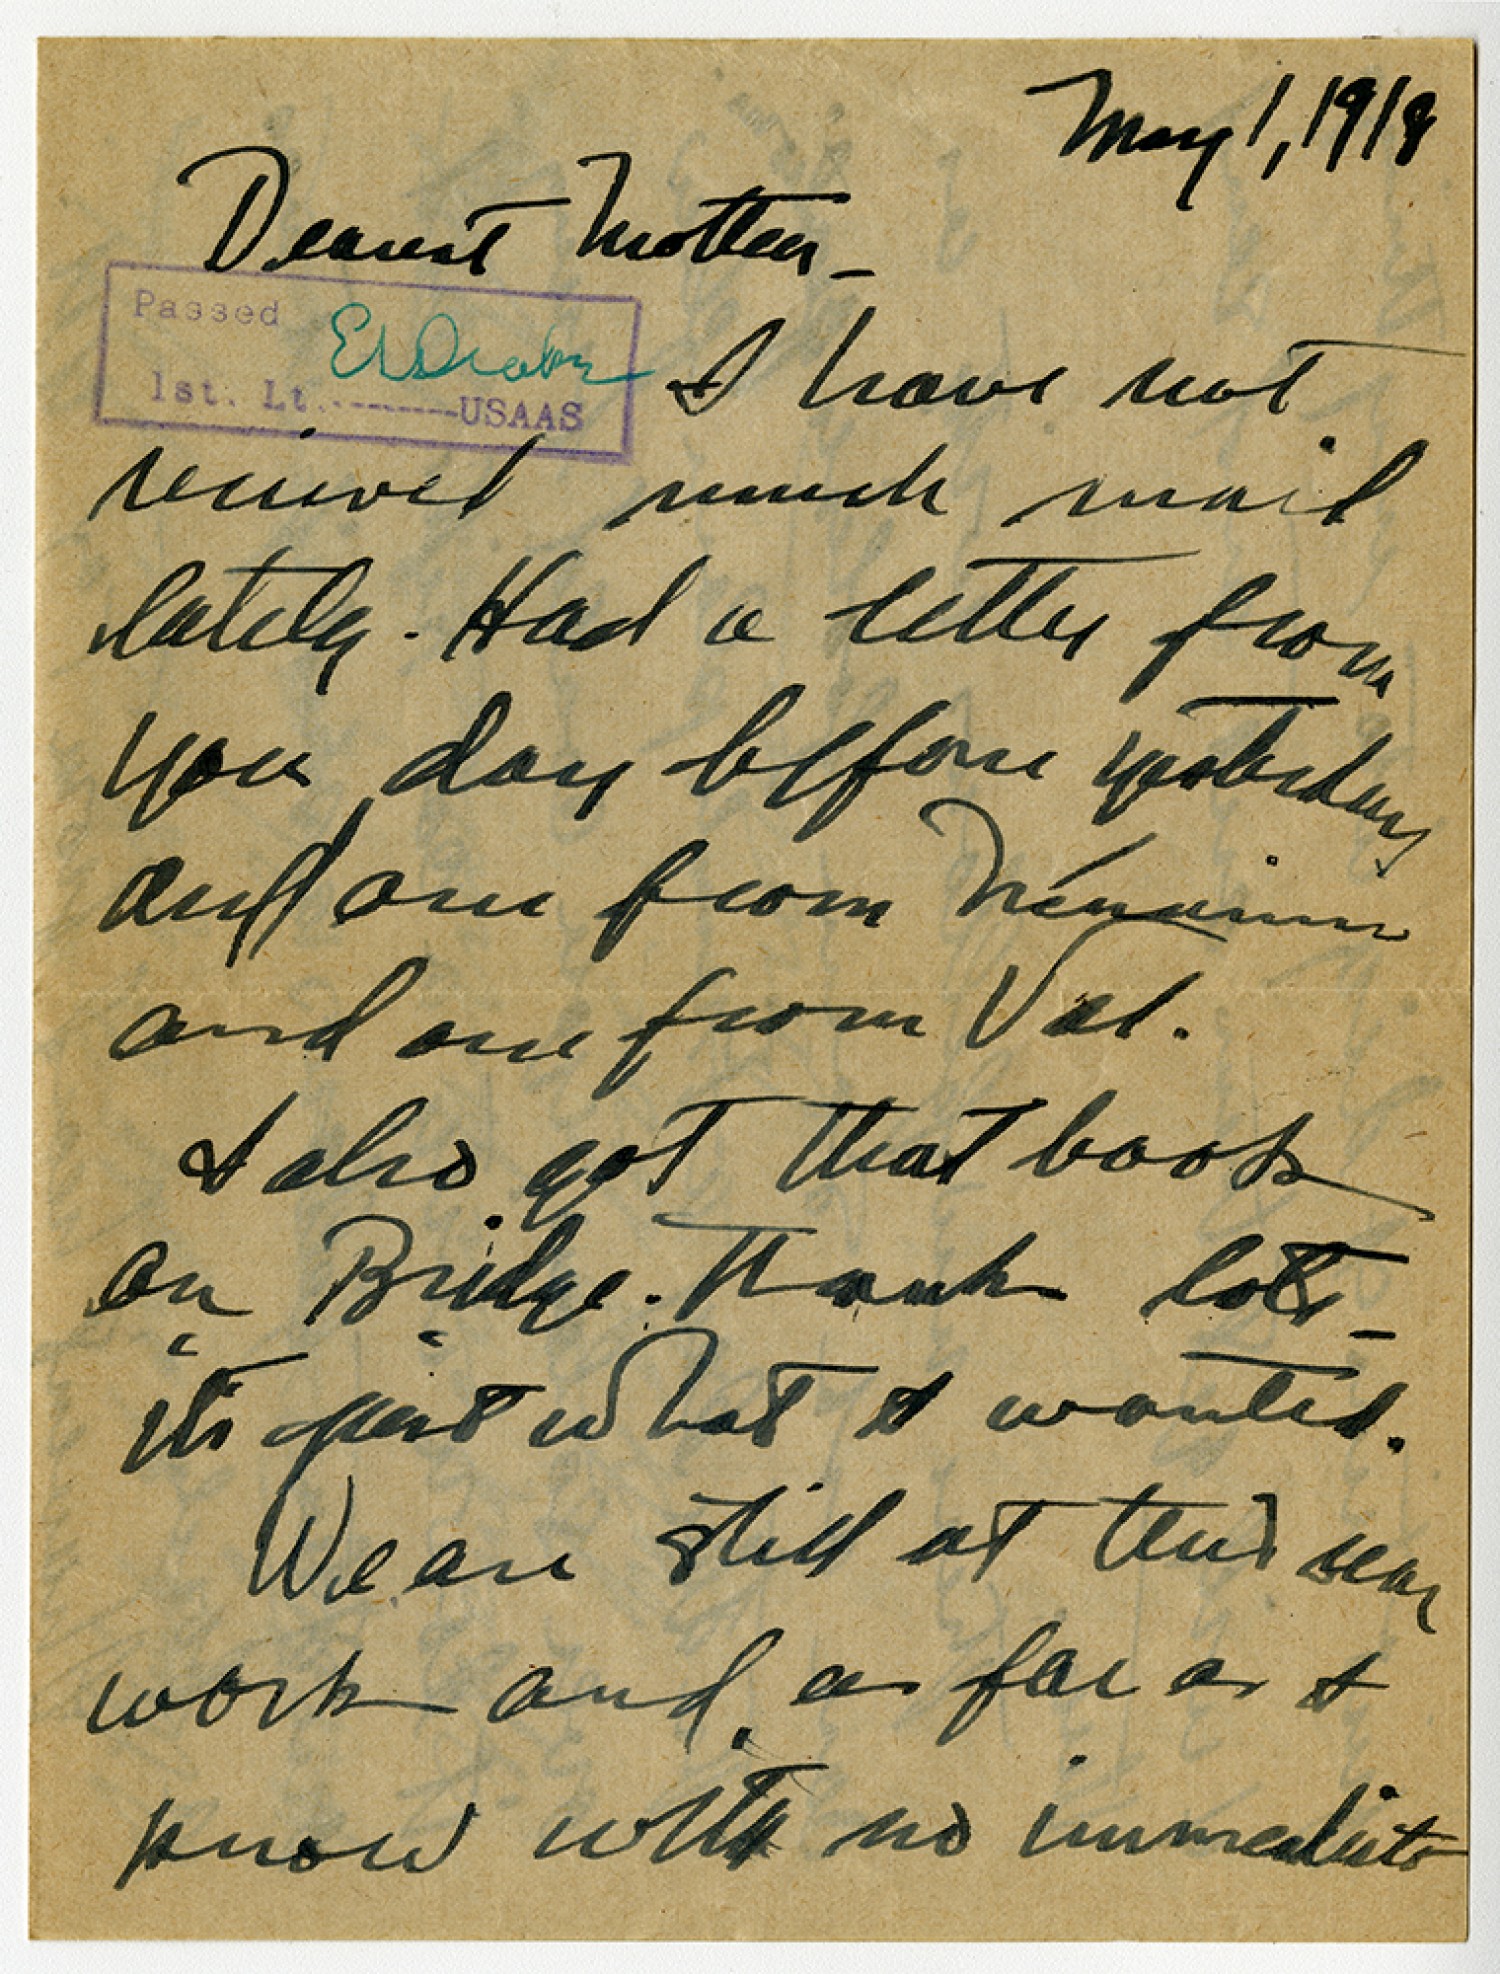 May 1, 1918
Dearest Mother –
Passed
1st. Lt. -------- USAAS
I have not
received much mail
lately. Had a letter from
you day before yesterday
and one from
and one from Val.
I also got that book
on Bridge. Thanks lots –
it's just what I wanted.
We are still at this rear
work and, as far as I
know with no immediate